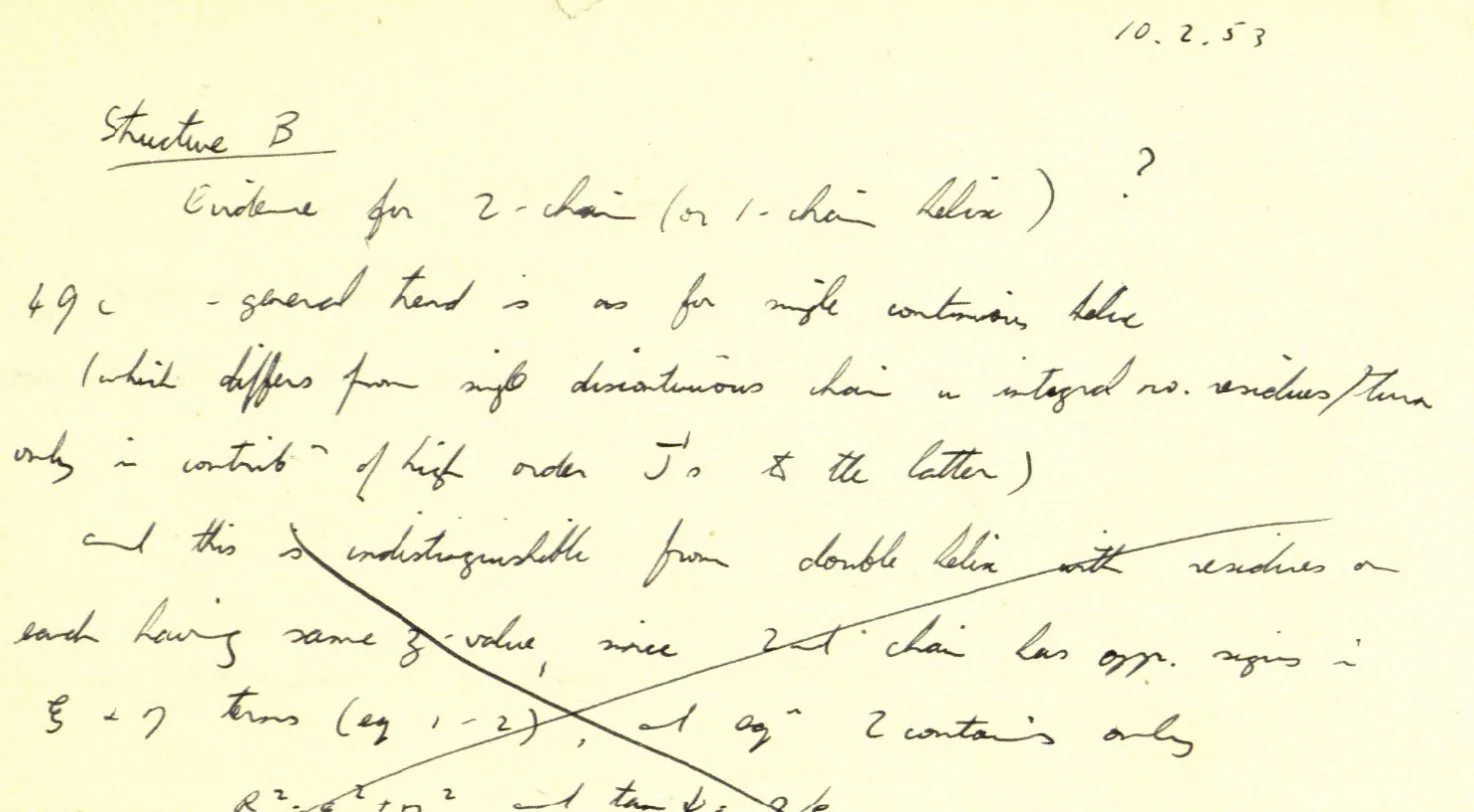 10.2.53
Structure B
Evidence for 2-chain (or 1-chain helix) ?
49c - general trend is as for single continuous helix
(which differs from single discontinuous chain w integral no. residues/turn
only in contribⁿ of high order J's to the latter)
and this is indistinguishable from double helix with residues on
each having same z-value, since 2nd chain has opp. signs in
ξ + η terms (eq 1-2), and eqⁿ 2 contains only
R² = ξ² + η² and tan ψ =